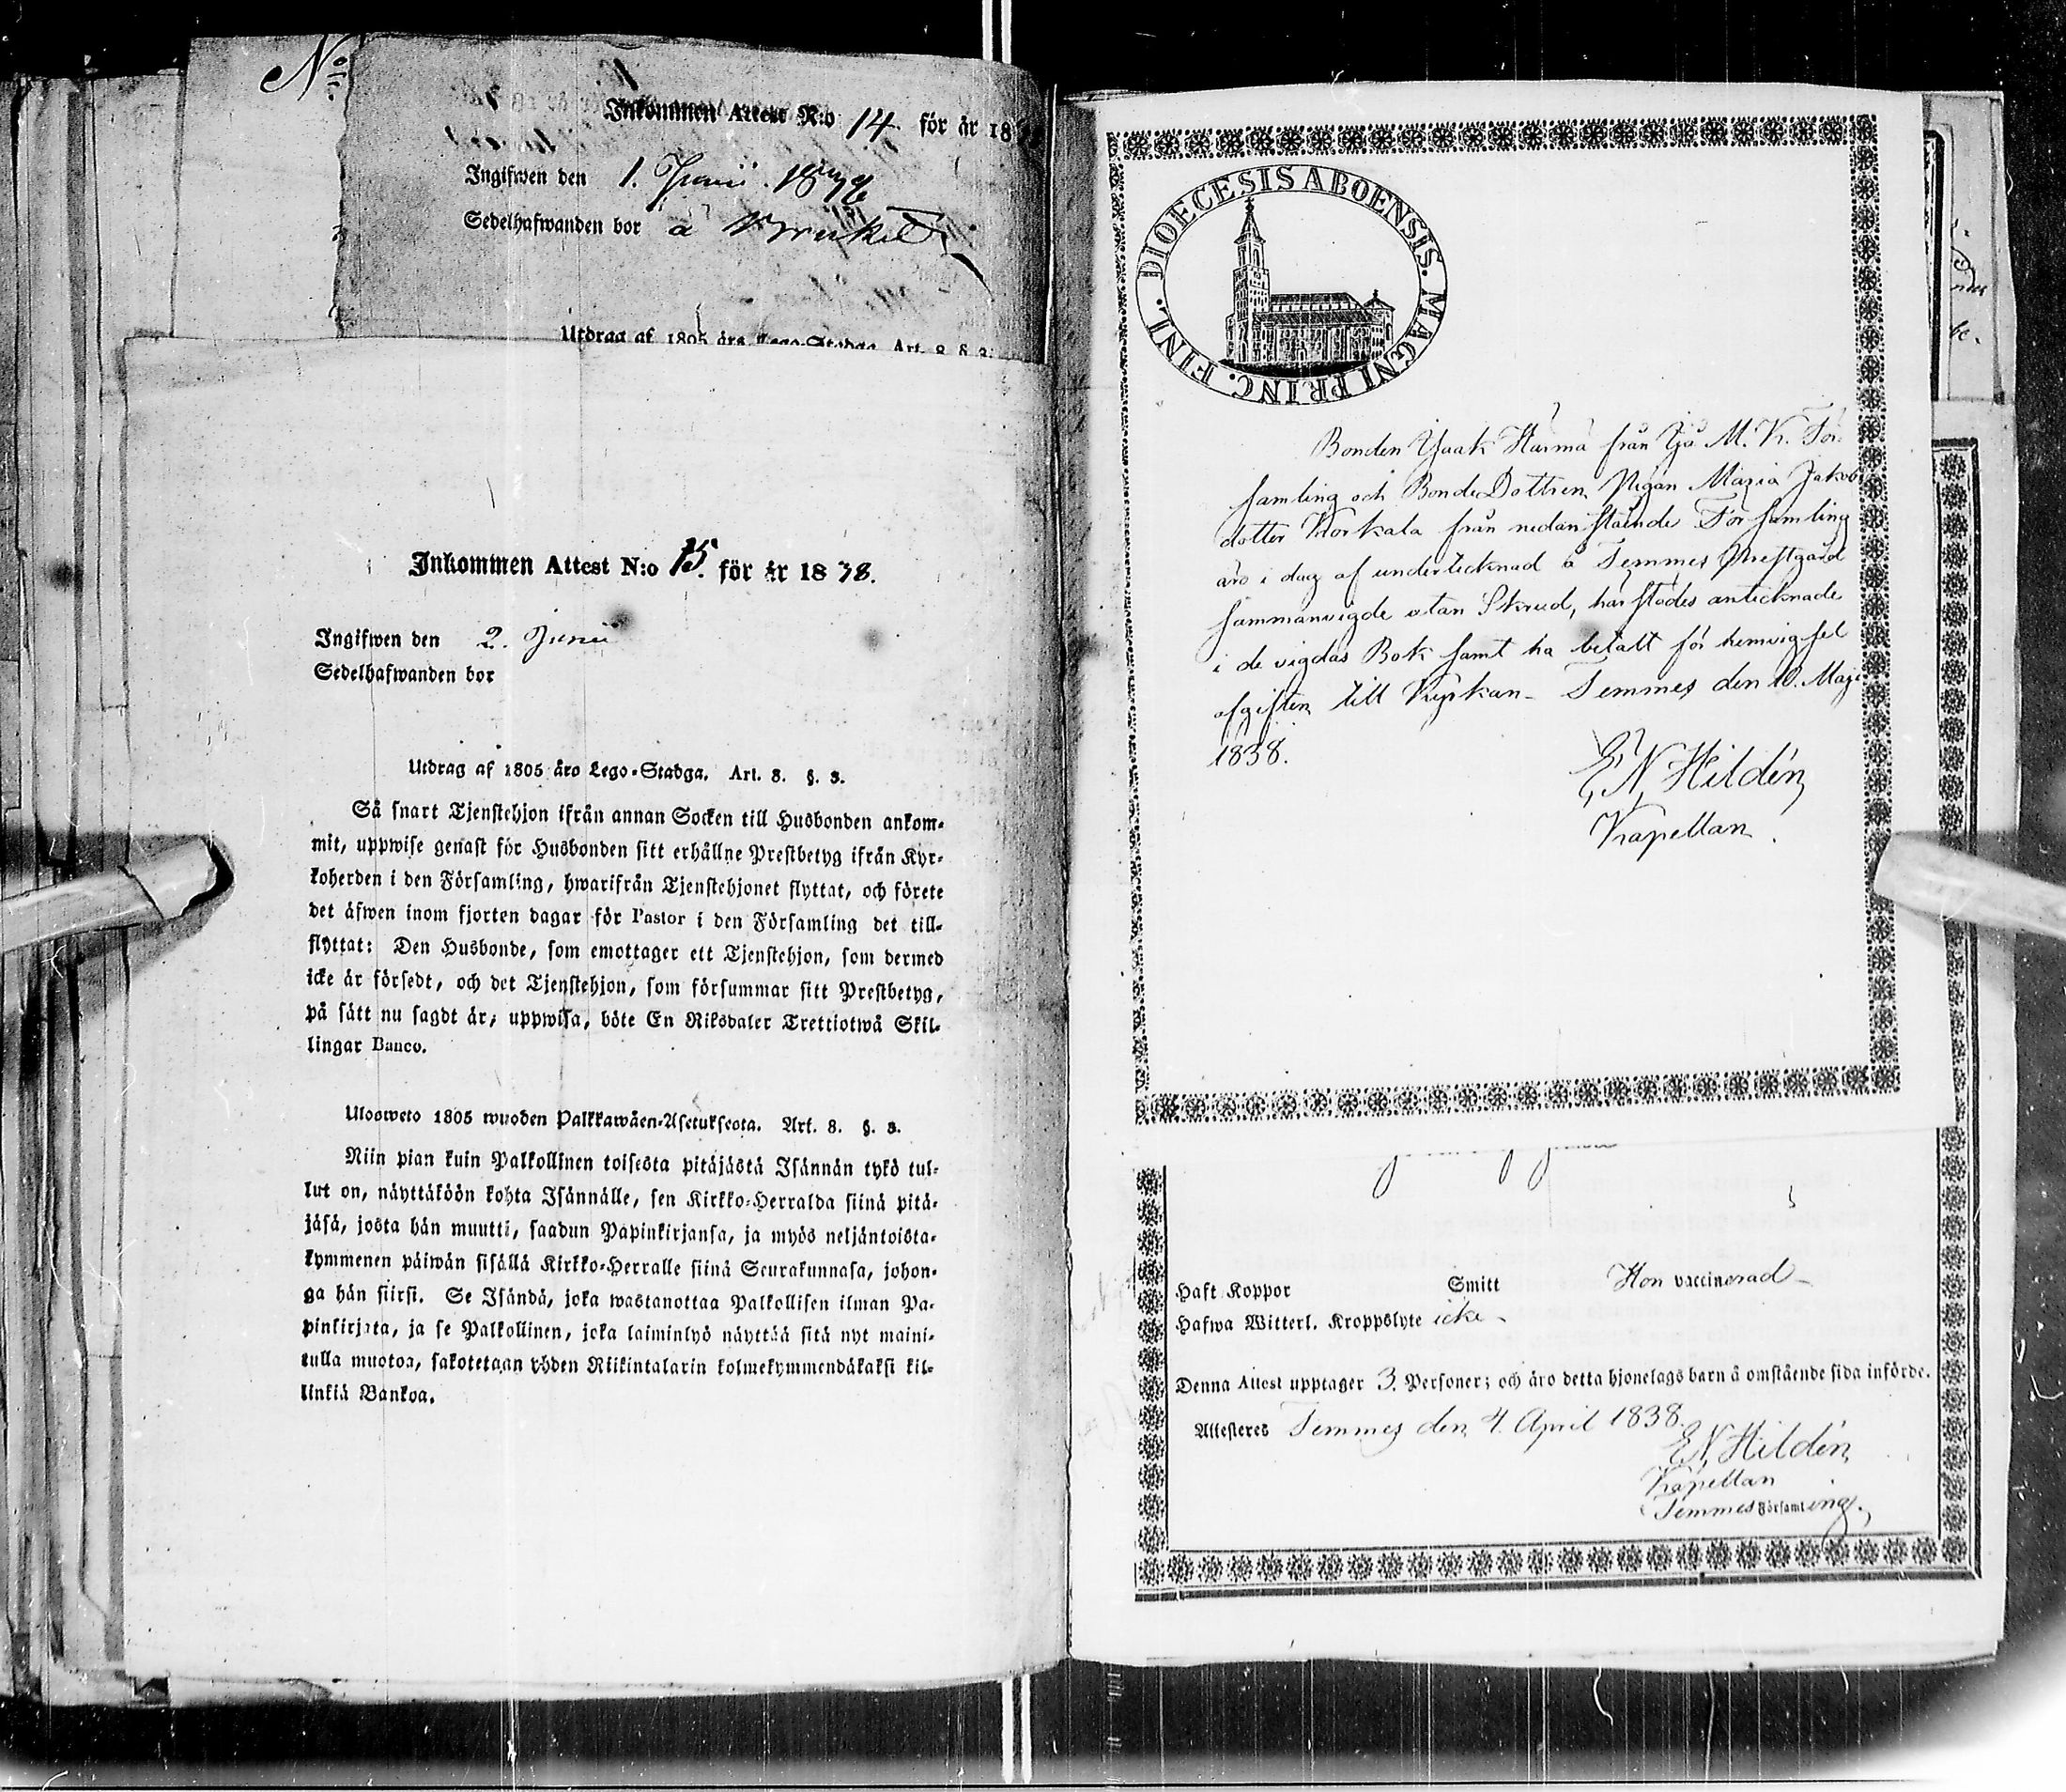 No
Inkommen Attest N:o 14 för år 18
Ingifwen den 1. Junii
Sedelhafwanden bor å
Utdrag af 1805 års Lego-Stadga. Art. 8 §. 3.
Inkommen Attest N:o 15. för år 1838.
Ingifwen den 2. Junii
Sedelhafwanden bor
Utdrag af 1805 års Lego-Stadga. Art. 8. §. 3.
Så snart Tjenstehjon ifrån annan Socken till Husbonden ankom-
mit, uppwise genast för Husbonden sitt erhållne Prestbetyg ifrån Kyr-
koherden i den Församling, hwarifrån Tjenstehjonet flyttat, och förete
det äfwen inom fjorten dagar för Pastor i den Församling det till-
flyttat: Den Husbonde, som emottager ett Tjenstehjon, som dermed
icke är försedt, och det Tjenstehjon, som försummar sitt Prestbetyg,
på sätt nu sagdt är, uppwisa, böte En Riksdaler Trettiotwå Skil-
lingar Banco.
Ulosweto 1805 wuoden Palkkawäen-Asetuksesta. Art. 8. §. 3.
Niin pian kuin Palkollinen toisesta pitäjästä Isännän tykö tul-
lut on, näyttäköön kohta Isännälle, sen Kirkko-Herralda siinä pitä-
jäsä, josta hän muutti, saadun Papinkirjansa, ja myös neljäntoista-
kymmenen päiwän sisällä Kirkko-Herralle siinä Seurakunnasa, johon-
ga hän siirsi. Se Isändä, joka wastanottaa Palkollisen ilman Pa-
pinkirjata, ja se Palkollinen, joka laiminlyö näyttää sitä nyt maini-
tulla muotoa, sakotetaan yhden Riikintalarin kolmekymmendäkaksi kil-
linkiä Bankoa.
DIOECESIS ABOENSIS. MAGNI PRINC. FINL.
Bonden Isaak Härmä från Ijå M. K. För-
samling och BondeDottren Pigan Maria Jakobs
dotter Korkala från nedanstående Församling
äro i dag af undertecknad å Temmes Prestgård
sammanvigde utan Skrud, härstädes antecknade
i de vigdas Bok samt ha betalt för hemvigsel
afgiften till Kyrkan. Temmes den 10. Maji
1838.
E. N. Hildén
Kapellan.
Haft Koppor Smitt Hon vaccinerad
Hafwa Witterl. Kroppslyte icke
Denna Attest upptager 3. Personer; och äro detta hjonelags barn å omstående sida införde.
Attesteres Temmes den 4. April 1838.
E N Hildén
Kapellan
Temmes Församling.